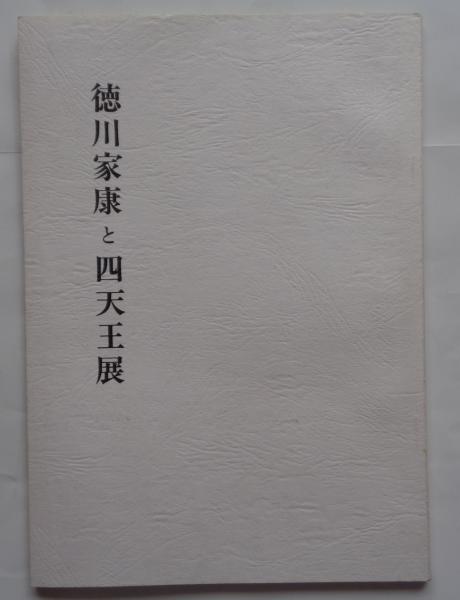 徳川家康と四天王展